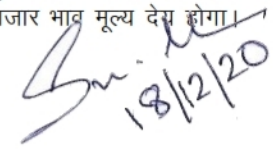 जार भाव मूल्य देय होगा।
18/12/20